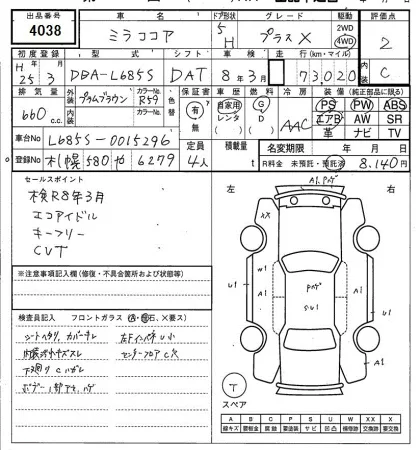 出品番号 4038
車名 ミラココア
ドア形状 5 H
グレード プラスX
駆動 2WD 4WD
評価点 2
内装 C
初度登録 H 25 3
型式 DBA-L685S
シフト DAT
車検 8年3月
走行(km・マイル) 73,020
排気量 660 c.c.
外装 プラムブラウン
カラーNo. R59
色替
内装
カラーNo.
保証書 有 無
車歴 自家用 レンタ
燃料 G D
冷房 AAC
装備(純正部品に限る)
PS PW ABS
エアB AW SR
革 ナビ TV
車台No L685S-0015296
定員 4人
積載量 t
名変期限 年 月 日
登録No 札幌 580 や 6279
R料金 未預託・預託済 8,140円
セールスポイント
検R8年3月
エコアイドル
キーフリー
CVT
※注意事項記入欄(修復・不具合箇所および改造等)
検査員記入欄 フロントガラス
シートヘタリ、カバーナレ
下廻りCハガレ
左Fインパネ U小
センターフロアC穴
左 右
A1,アゲ
XX
W1
U1
A1
A1
U1
A1
T
スペア
A B C P S U W X XX
線キズ 要板金 腐蝕 要塗装 サビ 凹凸 補修跡 要交換 交換済